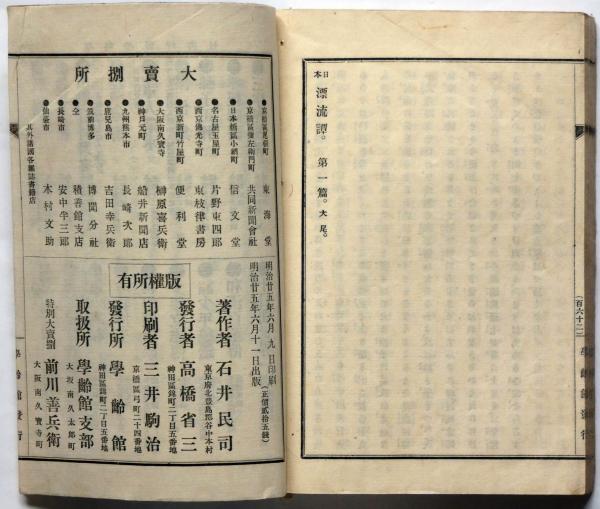 日本
漂流譚。第一篇。大尾。
(百六十二)
學齡館發行
大賣捌所
●京橋區尾張町 東海堂
●京橋區彌左衛門町 共同新聞會社
●日本橋區小網町 信文堂
●名古屋玉屋町 片野東四郎
●西京佛光寺町 東枝律書房
●西京新町竹屋町 便利堂
●大阪南久寶寺 榊原喜兵衛
●神戸元町 船井新聞店
●九州熊本市 長崎次郎
●鹿兒島市 吉田幸兵衛
●筑前博多 博聞分社
●仝 積善館支店
●長崎市 安中半三郎
●仙臺市 木村文助
其外諸國各雜誌書籍店
明治廿五年六月九日印刷
明治廿五年六月十一日出版
(正價貳拾五錢)
版權所有
著作者 東京府北豊島郡谷中本村 石井民司
發行者 神田區錦町二丁目五番地 高橋省三
印刷者 京橋區弓町二十四番地 三井駒治
發行所 神田區錦町二丁目五番地 學齡館
取扱所 大坂南久太郎町 學齡館支部
特別大賣捌 大坂南久寶寺町 前川善兵衛
學齡館發行